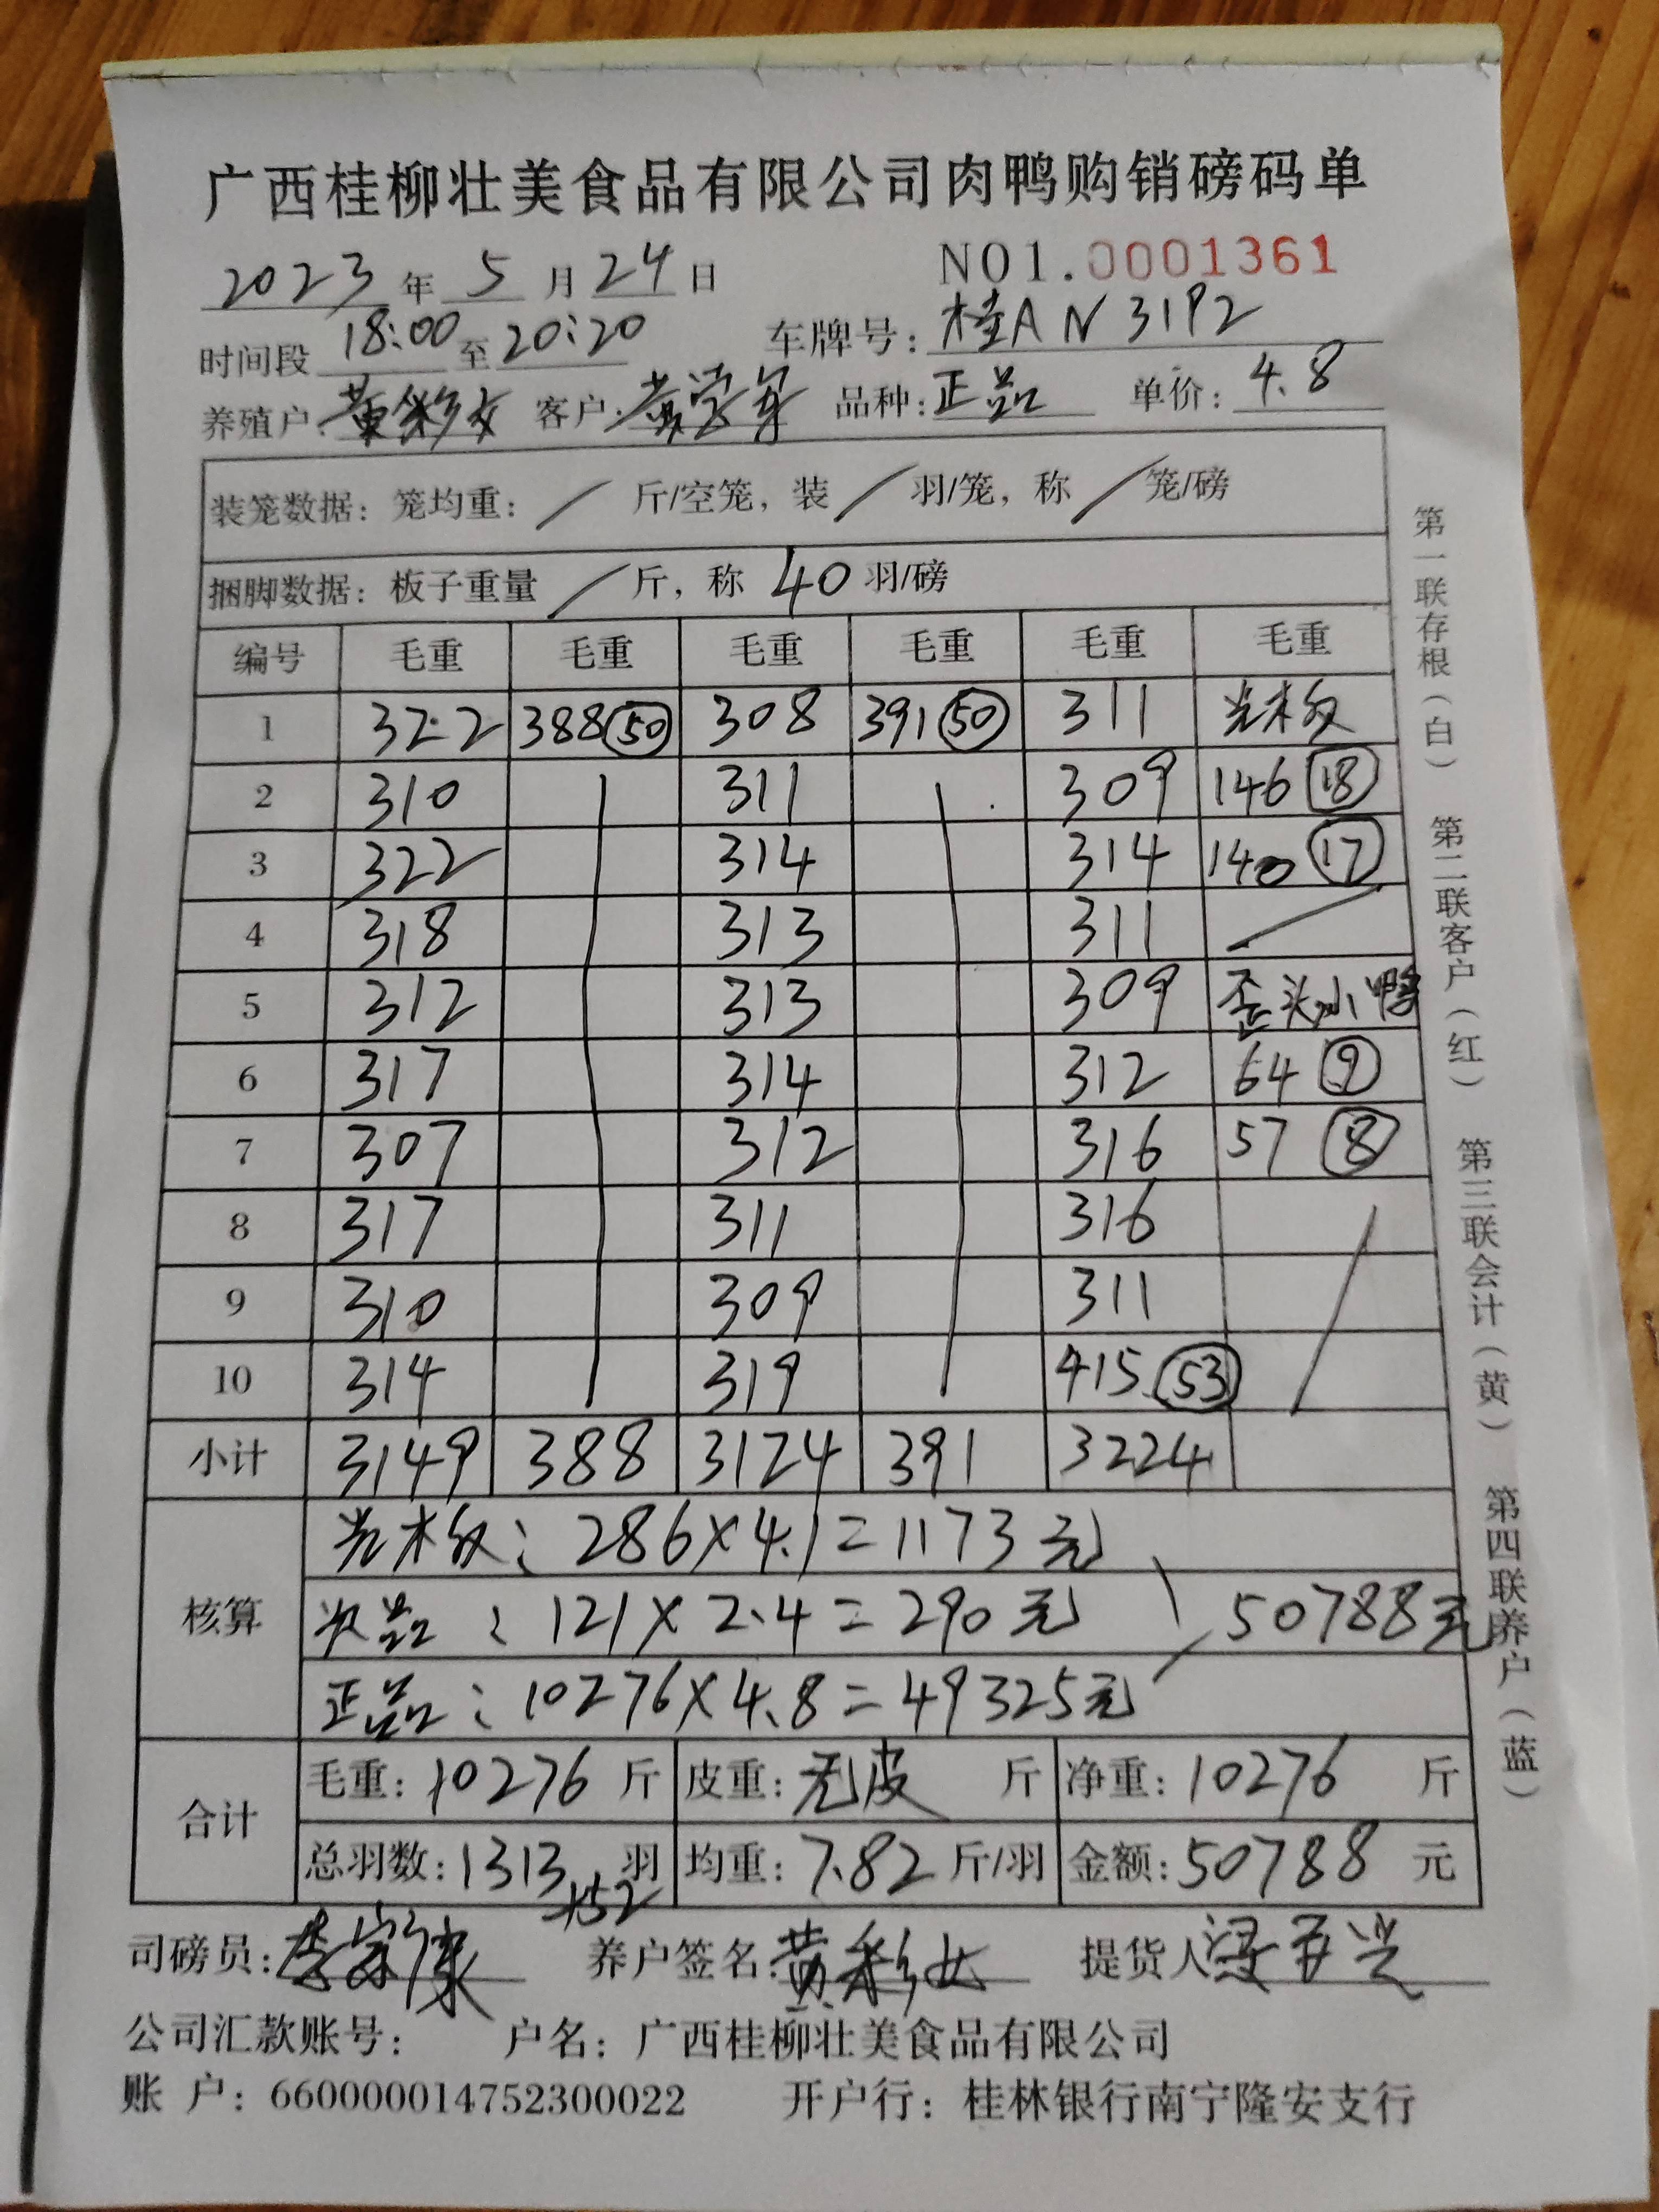 广西桂柳壮美食品有限公司肉鸭购销磅码单
2023年5月24日 NO1.0001361
时间段18:00至20:20 车牌号:桂AN3192
养殖户:黄彩女 客户:黄学军 品种:正品 单价:4.8
装笼数据:笼均重:/斤/空笼,装/羽/笼,称/笼/磅
捆脚数据:板子重量/斤,称40羽/磅
编号 毛重 毛重 毛重 毛重 毛重 毛重
1 322 388(50) 308 391(50) 311 光木板
2 310 311 309 146(18)
3 322 314 314 140(17)
4 318 313 311 /
5 312 313 309 歪头小鸭
6 317 314 312 64(9)
7 307 312 316 57(8)
8 317 311 316
9 310 309 311
10 314 319 415(53)
小计 3149 388 3124 391 3224
核算
光木板:286×4.1=1173元
次品:121×2.4=290元 50788元
正品:10276×4.8=49325元
合计
毛重:10276斤 皮重:无皮斤 净重:10276斤
总羽数:1313羽 均重:7.82斤/羽 金额:50788元
+52
司磅员: 养户签名:黄彩女 提货人
公司汇款账号: 户名:广西桂柳壮美食品有限公司
账 户:660000014752300022 开户行:桂林银行南宁隆安支行
第一联存根(白) 第二联客户(红) 第三联会计(黄) 第四联养户(蓝)